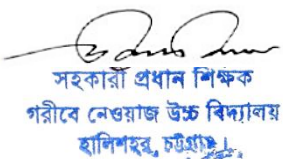 সহকারী প্রধান শিক্ষক
গরীবে নেওয়াজ উচ্চ বিদ্যালয়
হালিশহর, চট্টগ্রাম।